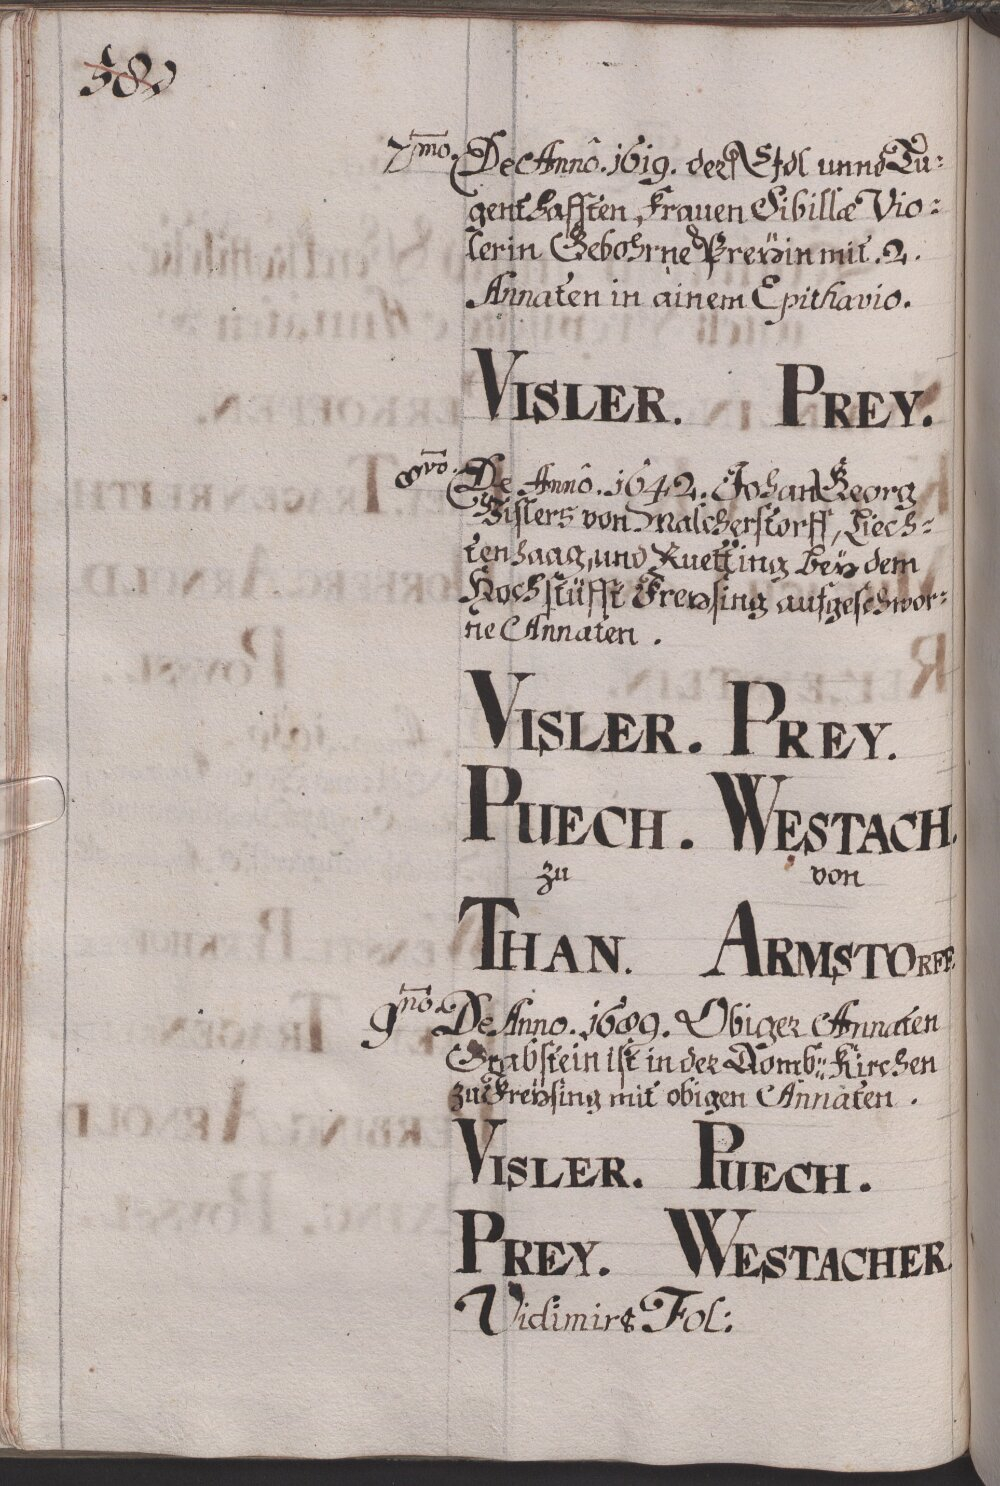 7mo. De Annô. 1619. der Edl unnd Tu:
genthafften, Frauen Sibillæ Vio:
lerin Gebohrne Preÿin mit .2.
Annaten in ainem Epithavio.
VISLER. PREY.
8vo. De Annô. 1642. Johan Georg
Vislers von Malcherstorff, Liech:
tenhaag, und Ruetting beÿ dem
Hochstüfft Freÿsing aufgeschwor:
ne Annaten .
VISLER. PREY.
PUECH. WESTACH.
zu von
THAN. ARMSTORFF.
9no. De Anno. 1689. Obiger Annaten
Grabstein ist in der Domb: Kirchen
zu Freÿsing mit obigen Annaten .
VISLER. PUECH.
PREY. WESTACHER.
Vidimirs Fol: